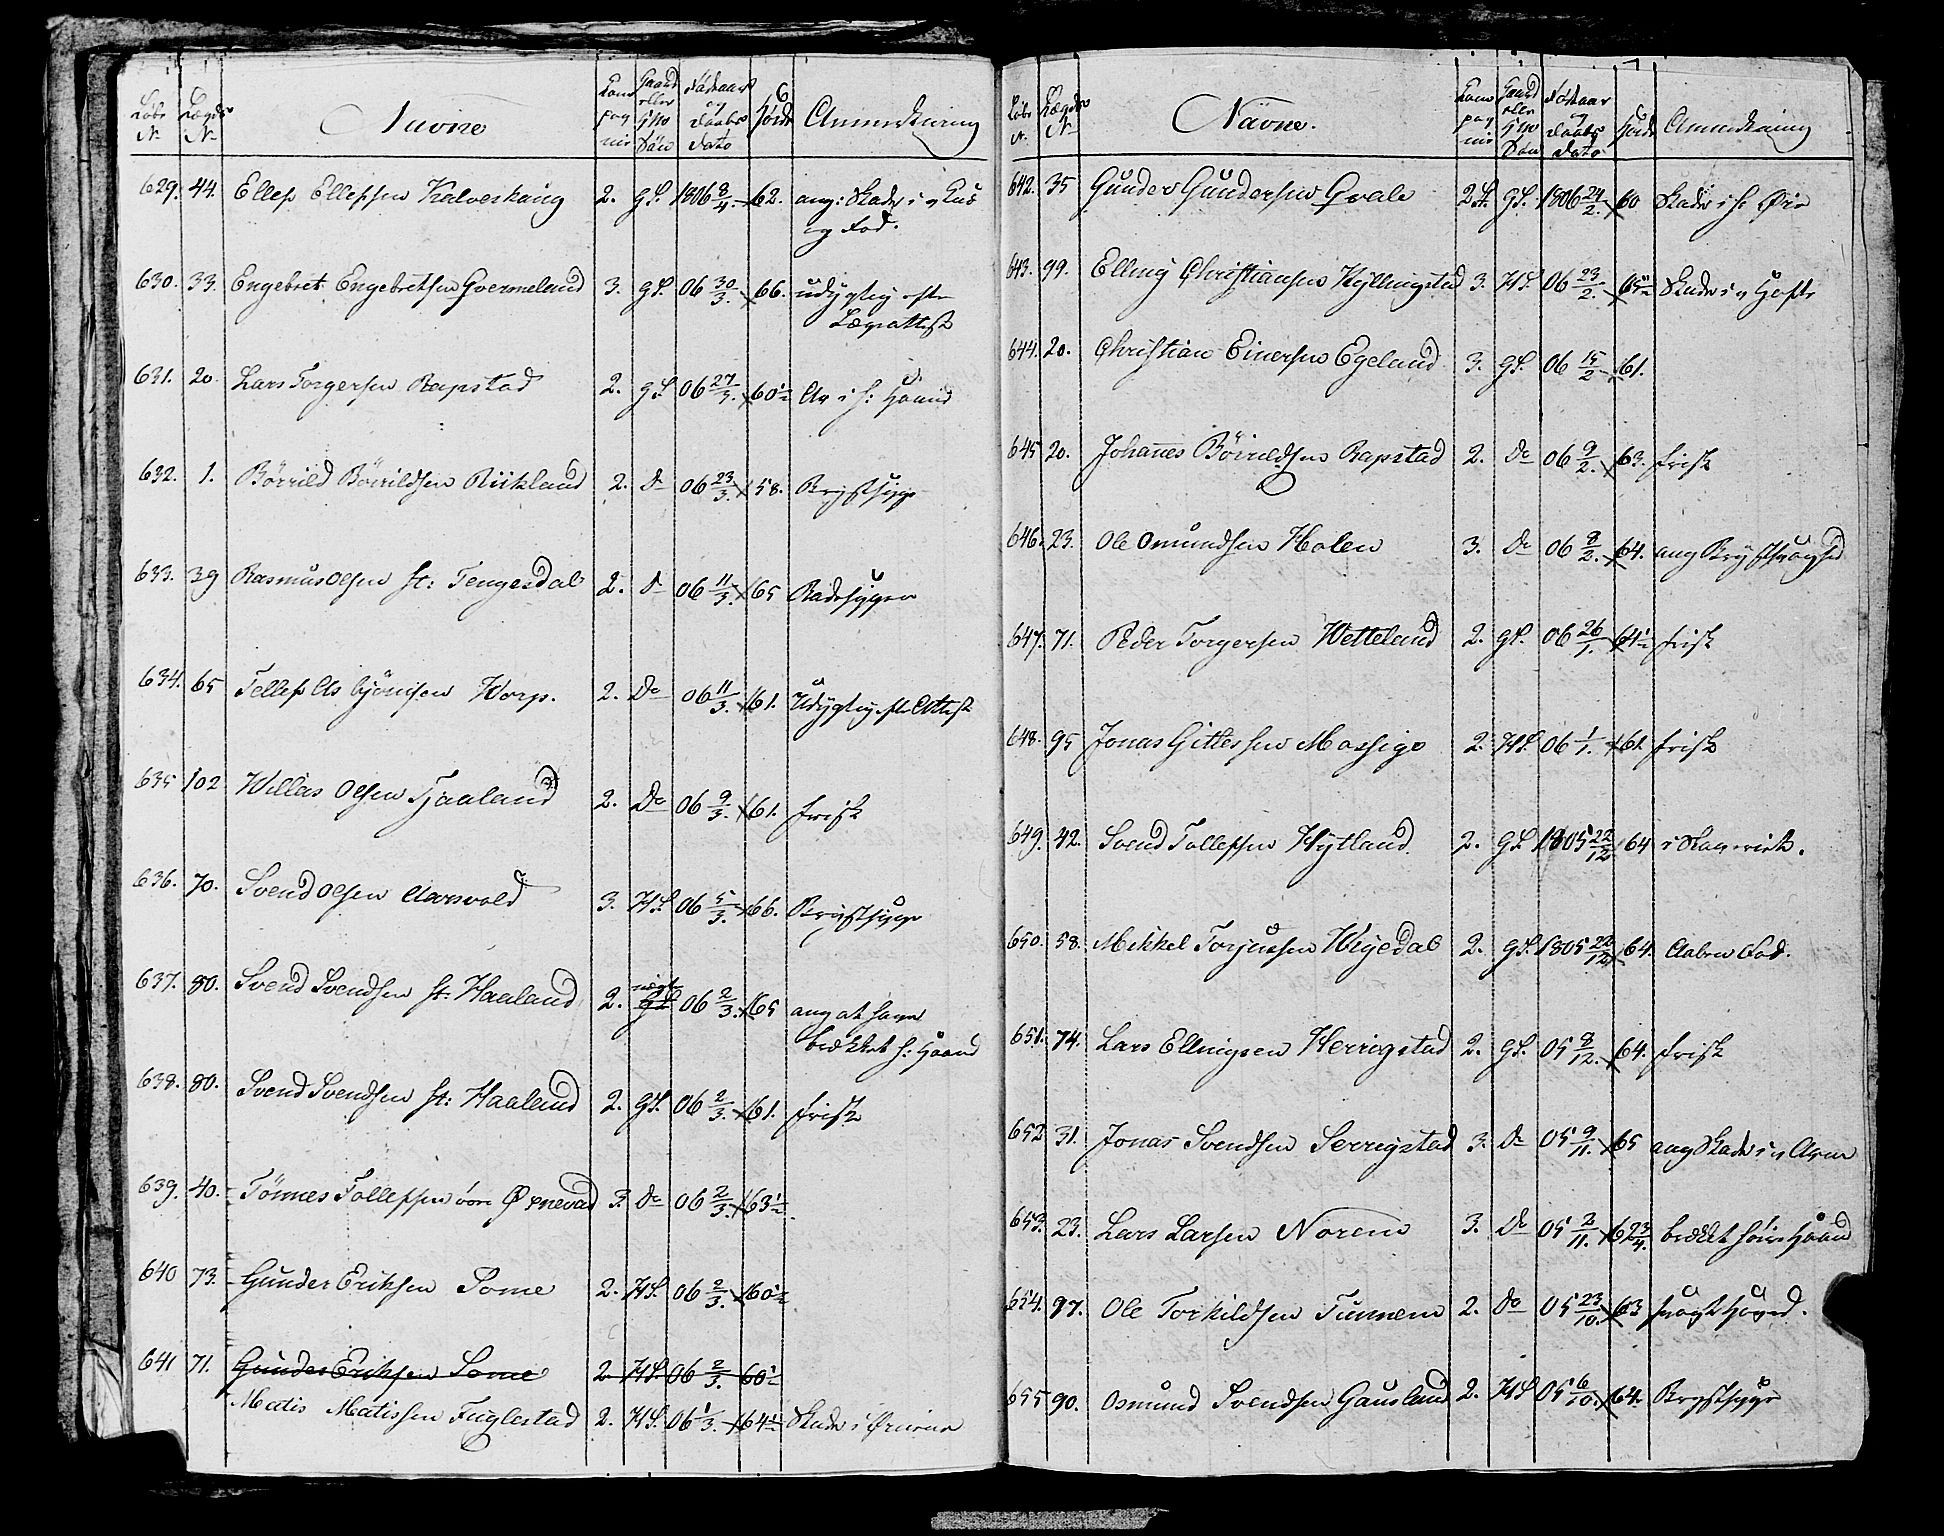 Løbe N Lægds N Navne Kompagnie Gaard eller Hs Søn Fødeaar og Daabs Dato Høide Anmerkning
629. 44. Ellef Ellefsen Kalveskaug 2. g.S. 1806 8/4. 62. ang: Skade i v Knæ
og Fod.
630. 33. Engebret Engebretsen Gvermeland 3. gS. 06 30/3. 66. udygtig efter
Lægeattest
631. 20. Lars Torgersen Rapstad 2. gS 06 27/3. 60½ Ar i h: Haand
632. 1. Börrild Börrildsen Birkland 2. Do 06 23/3. 58. Brystsyge
633. 39 Rasmus Olsen st: Tengesdal 2. Do 06 11/3. 65 Radesygen
634. 65 Tellef Asbjönsen Horp. 2. Do 06 11/3. 61. Udygtig efter Attest
635 102 Willas Olsen Tjaaland 2. Do 06 9/3. 61. frisk
636. 70. Svend Olsen Aarsvold 3. HS. 06 5/3. 66. Brystsyge
637. 80. Svend Svendsen st: Haaland 2. gS 06 2/3. 65 ang at have
brækket h: Haand
638. 80. Svend Svendsen st: Haaland 2. gS. 06 2/3. 61. frisk
639. 40. Tönnes Tollefsen övre Øxnevad 3. Do 06 2/3. 63½.
640 73. Gunder Eriksen Some 2. HS. 06 2/3. 60½
641 71. Gunder Eriksen Some 2. HS. 06 2/3. 60½
Matis Matissen Fuglestad 2. HS. 06 1/3. 64½ Skade i Øinene
Løbe N. Lægds N Navne. Kompagnie Gaard eller Hs Søn Fødeaar og Daabs Dato Høide Anmerkning
642. 35 Gunder Gundersen Qvale 2. gS. 1806 24/2. 60 Skade i h: Øre
643. 99. Elling Christiansen Kyllingstad 3. HS. 06 23/2. 65½ Skade i v Hofte
644. 20. Christian Einersen Egeland 3. gS. 06 15/2. 61.
645 20. Johannes Börrildsen Rapstad 2. Do 06 9/2. 63. frisk
646. 23. Ole Omundsen Holen 3. Do 06 8/2. 64. ang Brystsvaghed
647. 71. Peder Torgersen Wetteland 2. gS. 06 26/1. 64½ frisk
648. 95 Jonas Gitlesen Mossige 2. HS. 06 1/1. 61 frisk
649. 42. Svend Tollefsen Hytland. 2. gS 1805 22/12 64 i Skarevik.
650. 58. Mikkel Torjussen Wigedal 2. gS. 1805 22/12 64. Aaben Fod.
651. 74. Lars Ellingsen Herrigstad 2. gS. 05 8/12. 64. frisk
652 31. Jonas Svendsen Serrigstad 3. Do 05 9/11. 65 ang Skade i v Arm
653. 23. Lars Larsen Norem 3. Do 05 2/11. 62¾. brækket höire Haand
654. 97. Ole Torkildsen Tunnem 2. Do 05 23/10. 63 svagt Hoved.
655 90. Osmund Svendsen Gausland 2. HS. 05 6/10. 64. Brystsyge